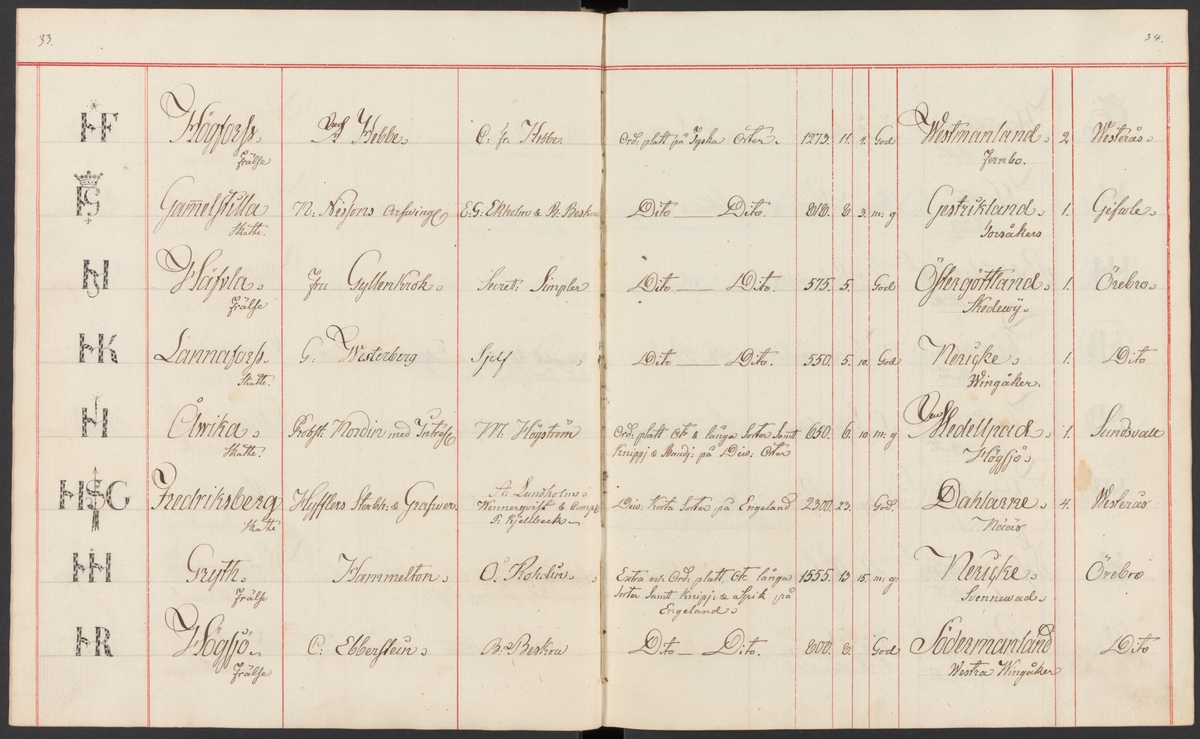 33.
34.
HF Högforss. v. Hebbe. C: fr. Hebbe. Ord: platt på Tyska Orter. 1273. 11. 4. God Westmanland. 2 Westerås.
Frälse
Jernbo.
HG Gammelstilla N. Nissons Arfwinge E.G: Ekholm & B. Beskow Dito Dito. 818. 8. 3. m: g Gestrikland. 1. Gefwle.
Skatte.
Torsåkers
HJ Häfvla. Fru Gyllenkrok. Secret: Simpler Dito Dito. 575. 5. God Östergöttland. 1. Örebro.
Frälse
Skedewij.
HK Lannaforss. G. Westerberg Sjelf Dito Dito. 550. 5. 10. God Nerijke. 1. Dito
Skatte.
Wingåker.
H Älvika. Probst: Nordin med Intress: M. Högström Ord: platt Ct: & långa Sorter Samt 650. 6. 10 m: g Medellpad. 1. Sundsvall
Skatte.
Knippj: & Handj: på Div: Orter
Högsjö.
HSG Fredriksberg Hyfflers Sterbh: & Grafwer A: Lundholm. Div: Korta Sorter på Engeland 2300. 23. God. Dahlarne. 4. Westerås
Skatte
Wennerqvist & Comp:
P: Kjellbeck.
Näås
HH Gryth. Hammelton. O. Roholin. Extra ord: Ord: platt, Ct: långa 1555. 13 15. m: g: Nerijke. Örebro
Frälse
Sorter Samt Knipj: & a Spik på
Engeland.
Svennewad.
HR Högsjö. C: Ebberstein. B: Beskow Dito Dito. 800. 8. God Södermanland Dito
Frälse
Westra Wingåker